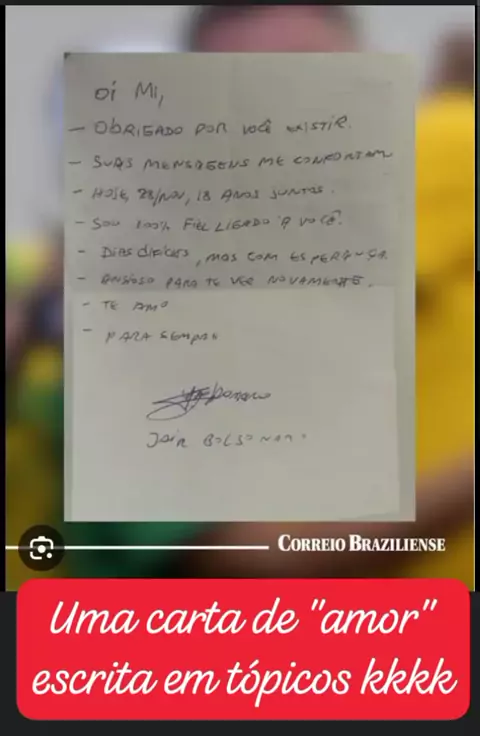 Oi Mi,
- OBRIGADO POR VOCÊ EXISTIR.
- SUAS MENSAGENS ME CONFORTAM
- HOJE, 28/NOV, 18 ANOS JUNTOS.
- SOU 100% FIEL LIGADO A VOCÊ.
- DIAS DIFÍCEIS, MAS COM ESPERANÇA.
- ANSIOSO PARA TE VER NOVAMENTE.
- TE AMO
- PARA SEMPRE
JAIR BOLSONARO
CORREIO BRAZILIENSE
Uma carta de "amor"
escrita em tópicos kkkk